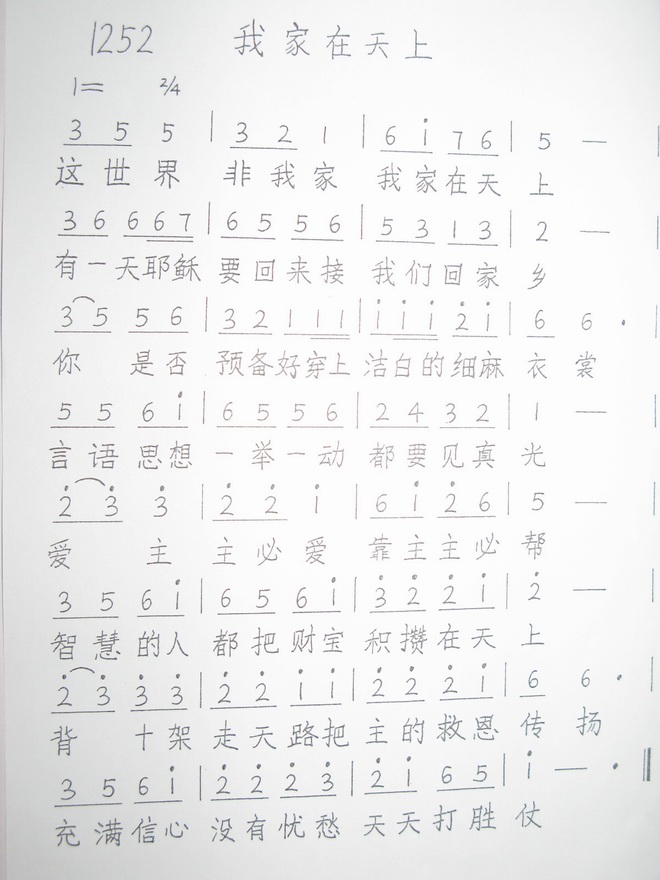 1252 我家在天上
1= 2/4
3 5 5 | 3 2 1 | 6 i̇ 7 6 | 5 —
这世界 非我家 我家在天上
3 6 6 6 7 | 6 5 5 6 | 5 3 1 3 | 2 —
有一天耶稣 要回来接 我们回家乡
3 5 5 6 | 3 2 1 1 1 | i̇ i̇ i̇ 2̇ i̇ | 6 6 .
你 是否 预备好穿上 洁白的细麻 衣裳
5 5 6 i̇ | 6 5 5 6 | 2 4 3 2 | 1 —
言语思想 一举一动 都要见真光
2̇ 3̇ 3̇ | 2̇ 2̇ i̇ | 6 i̇ 2̇ 6 | 5 —
爱 主 主必爱 靠主主必帮
3 5 6 i̇ | 6 5 6 i̇ | 3̇ 2̇ 2̇ i̇ | 2̇ —
智慧的人 都把财宝 积攒在天上
2̇ 3̇ 3̇ 3̇ | 2̇ 2̇ i̇ i̇ | 2̇ 2̇ 2̇ i̇ | 6 6 .
背 十架 走天路把 主的救恩 传扬
3 5 6 i̇ | 2̇ 2̇ 2̇ 3̇ | 2̇ i̇ 6 5 | i̇ — . ‖
充满信心 没有忧愁 天天打胜仗